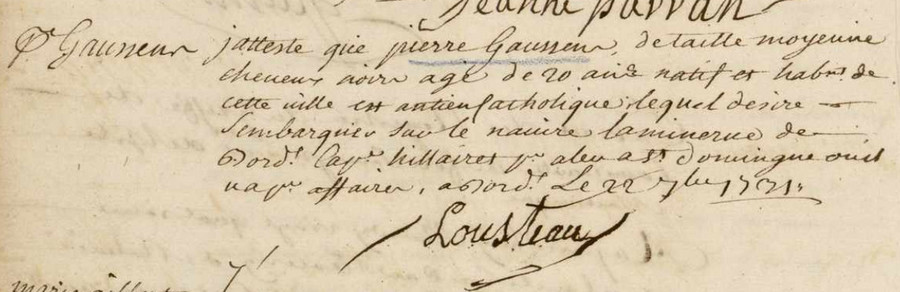 Jeanne parran
Pre Gausseur jatteste que pierre Gausseur, detaille moyenne
cheveux noirs agé de 20 ans natif et habnt de
cette ville est antien Catholique lequel desire
Sembarquer Sur le navire laminerve de
Bordx Capne hillairet pr aler a st domingue ou il
va pr affaires, a Bordx Le 22 7bre 1731
Lousteau